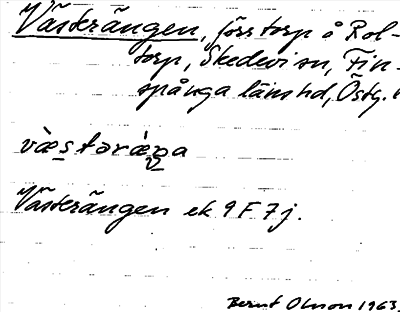 Västerängen, förs torp å Rol-
torp, Skedevi sn, Fin-
spånga läns hd, Östg.
Västerängen ek 9F7j.
Bernt Olsson 1963.